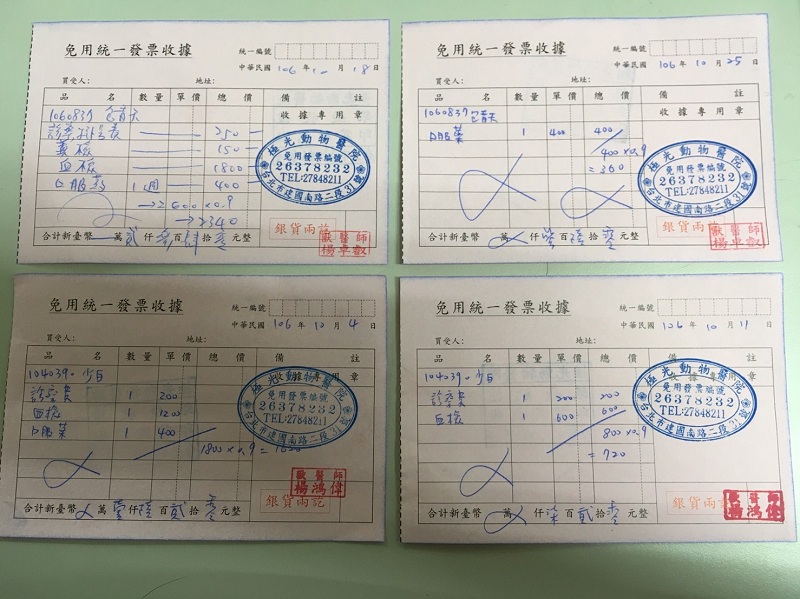 免用統一發票收據
統一編號
中華民國 106 年 10 月 18 日
買受人： 地址：
品 名 數量 單價 總 價 備 註
1060837 包青天 收據專用章
診察掛號費 250
糞檢 150
血檢 1800
口服藥 1週 400
→2600×0.9
→2340
極光動物醫院
免用發票編號
26378232
TEL:27848211
台北市建國南路二段31號
銀貨兩訖
合計新臺幣 萬 貳 仟 參 百 肆 拾 零 元整
獸醫師
楊卓叡
免用統一發票收據
統一編號
中華民國 106 年 10 月 25 日
買受人： 地址：
品 名 數量 單價 總 價 備 註
1060837 包青天 收據專用章
口服藥 1 400 400
400×0.9
=360
極光動物醫院
免用發票編號
26378232
TEL:27848211
台北市建國南路二段31號
銀貨兩訖
合計新臺幣 萬 仟 百 陸 拾 零 元整
獸醫師
楊卓叡
免用統一發票收據
統一編號
中華民國 106 年 10 月 4 日
買受人： 地址：
品 名 數量 單價 總 價 備 註
104039- 少白
診察費 1 200
血檢 1 1200
口服藥 1 400
1800×0.9=1620
極光動物醫院
免用發票編號
26378232
TEL:27848211
台北市建國南路二段31號
獸醫師
楊鴻偉
銀貨兩訖
合計新臺幣 萬 壹 仟 陸 百 貳 拾 零 元整
免用統一發票收據
統一編號
中華民國 106 年 10 月 11 日
買受人： 地址：
品 名 數量 單價 總 價 備 註
104039- 少白
診察費 1 200 200
血檢 1 600 600
800×0.9
=720
極光動物醫院
免用發票編號
26378232
TEL:27848211
台北市建國南路二段31號
銀貨兩訖
獸醫師
楊鴻偉
合計新臺幣 萬 仟 柒 百 貳 拾 零 元整